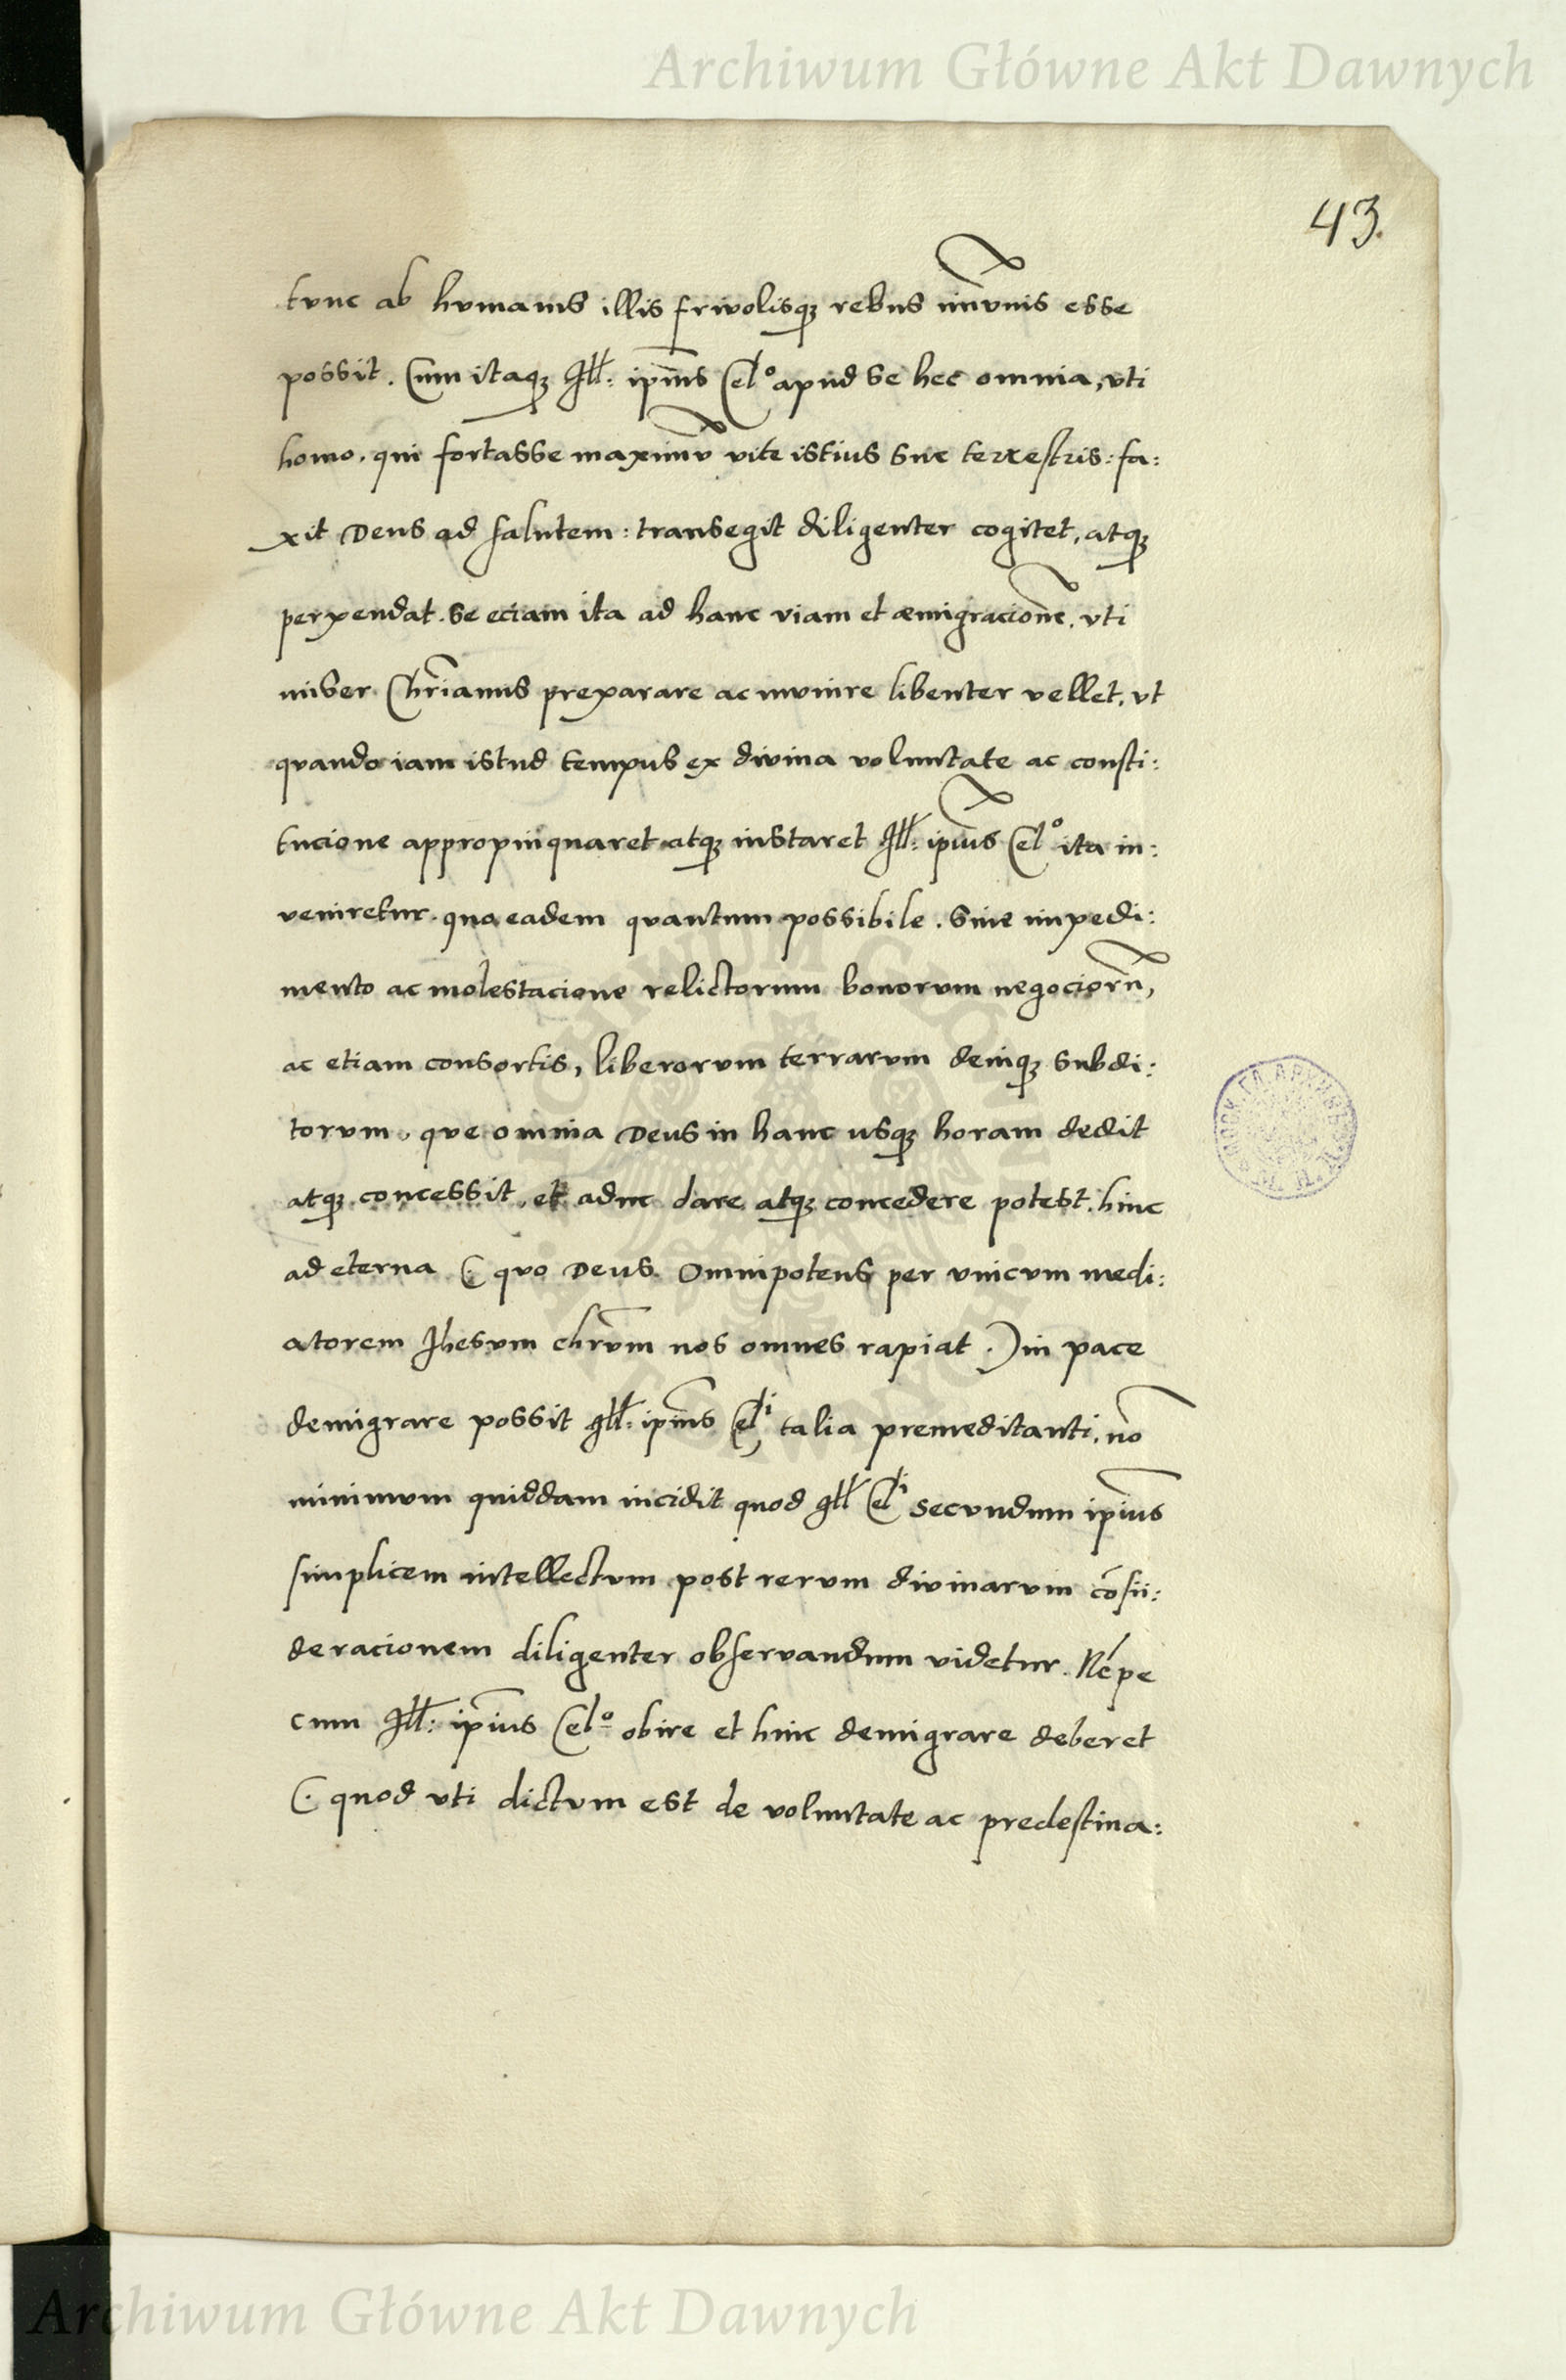 Archiwum Główne Akt Dawnych
43.
tunc ab humanis illis frivolisq; rebus im̄unis esse
possit. Cum itaq; Ill: ip̄ius Celº apud se hec omnia, vti
homo. qui fortasse maximū vite istius sue terrestris: fa:
xit Deus ad salutem: transegit diligenter cogitet, atq;
perpendat. Se eciam ita ad hanc viam et æmigracionē. vti
miser Chr̄ianus preparare ac munire libenter vellet, vt
quando iam istud tempus ex divina voluntate ac consti:
tucione appropinquaret atq; instaret Ill: ip̄ius Celº ita in:
veniretur. quo eadem quantum possibile. Sine impedi:
mento ac molestacione relictorum bonorum negociorū,
ac etiam consortis, liberorum terrarum deniq; subdi:
torum, que omnia Deus in hanc usq; horam dedit
atq; concessit, et aduc dare atq; concedere potest. hinc
ad eterna (. quo Deus Omnipotens per vnicum medi:
atorem Jhesum chr̄um nos omnes rapiat .) in pace
demigrare possit Ill: ip̄ius Celⁱ talia premeditanti, nō
minimum quiddam incidit quod Ill Celⁱ secundum ip̄ius
simplicem intellectum post rerum divinarum cōsii:
deracionem diligenter observandum videtur. Nēpe
cum Ill: ip̄ius Celº obire et hinc demigrare deberet
(. quod vti dictum est de voluntate ac predestina:
Archiwum Główne Akt Dawnych